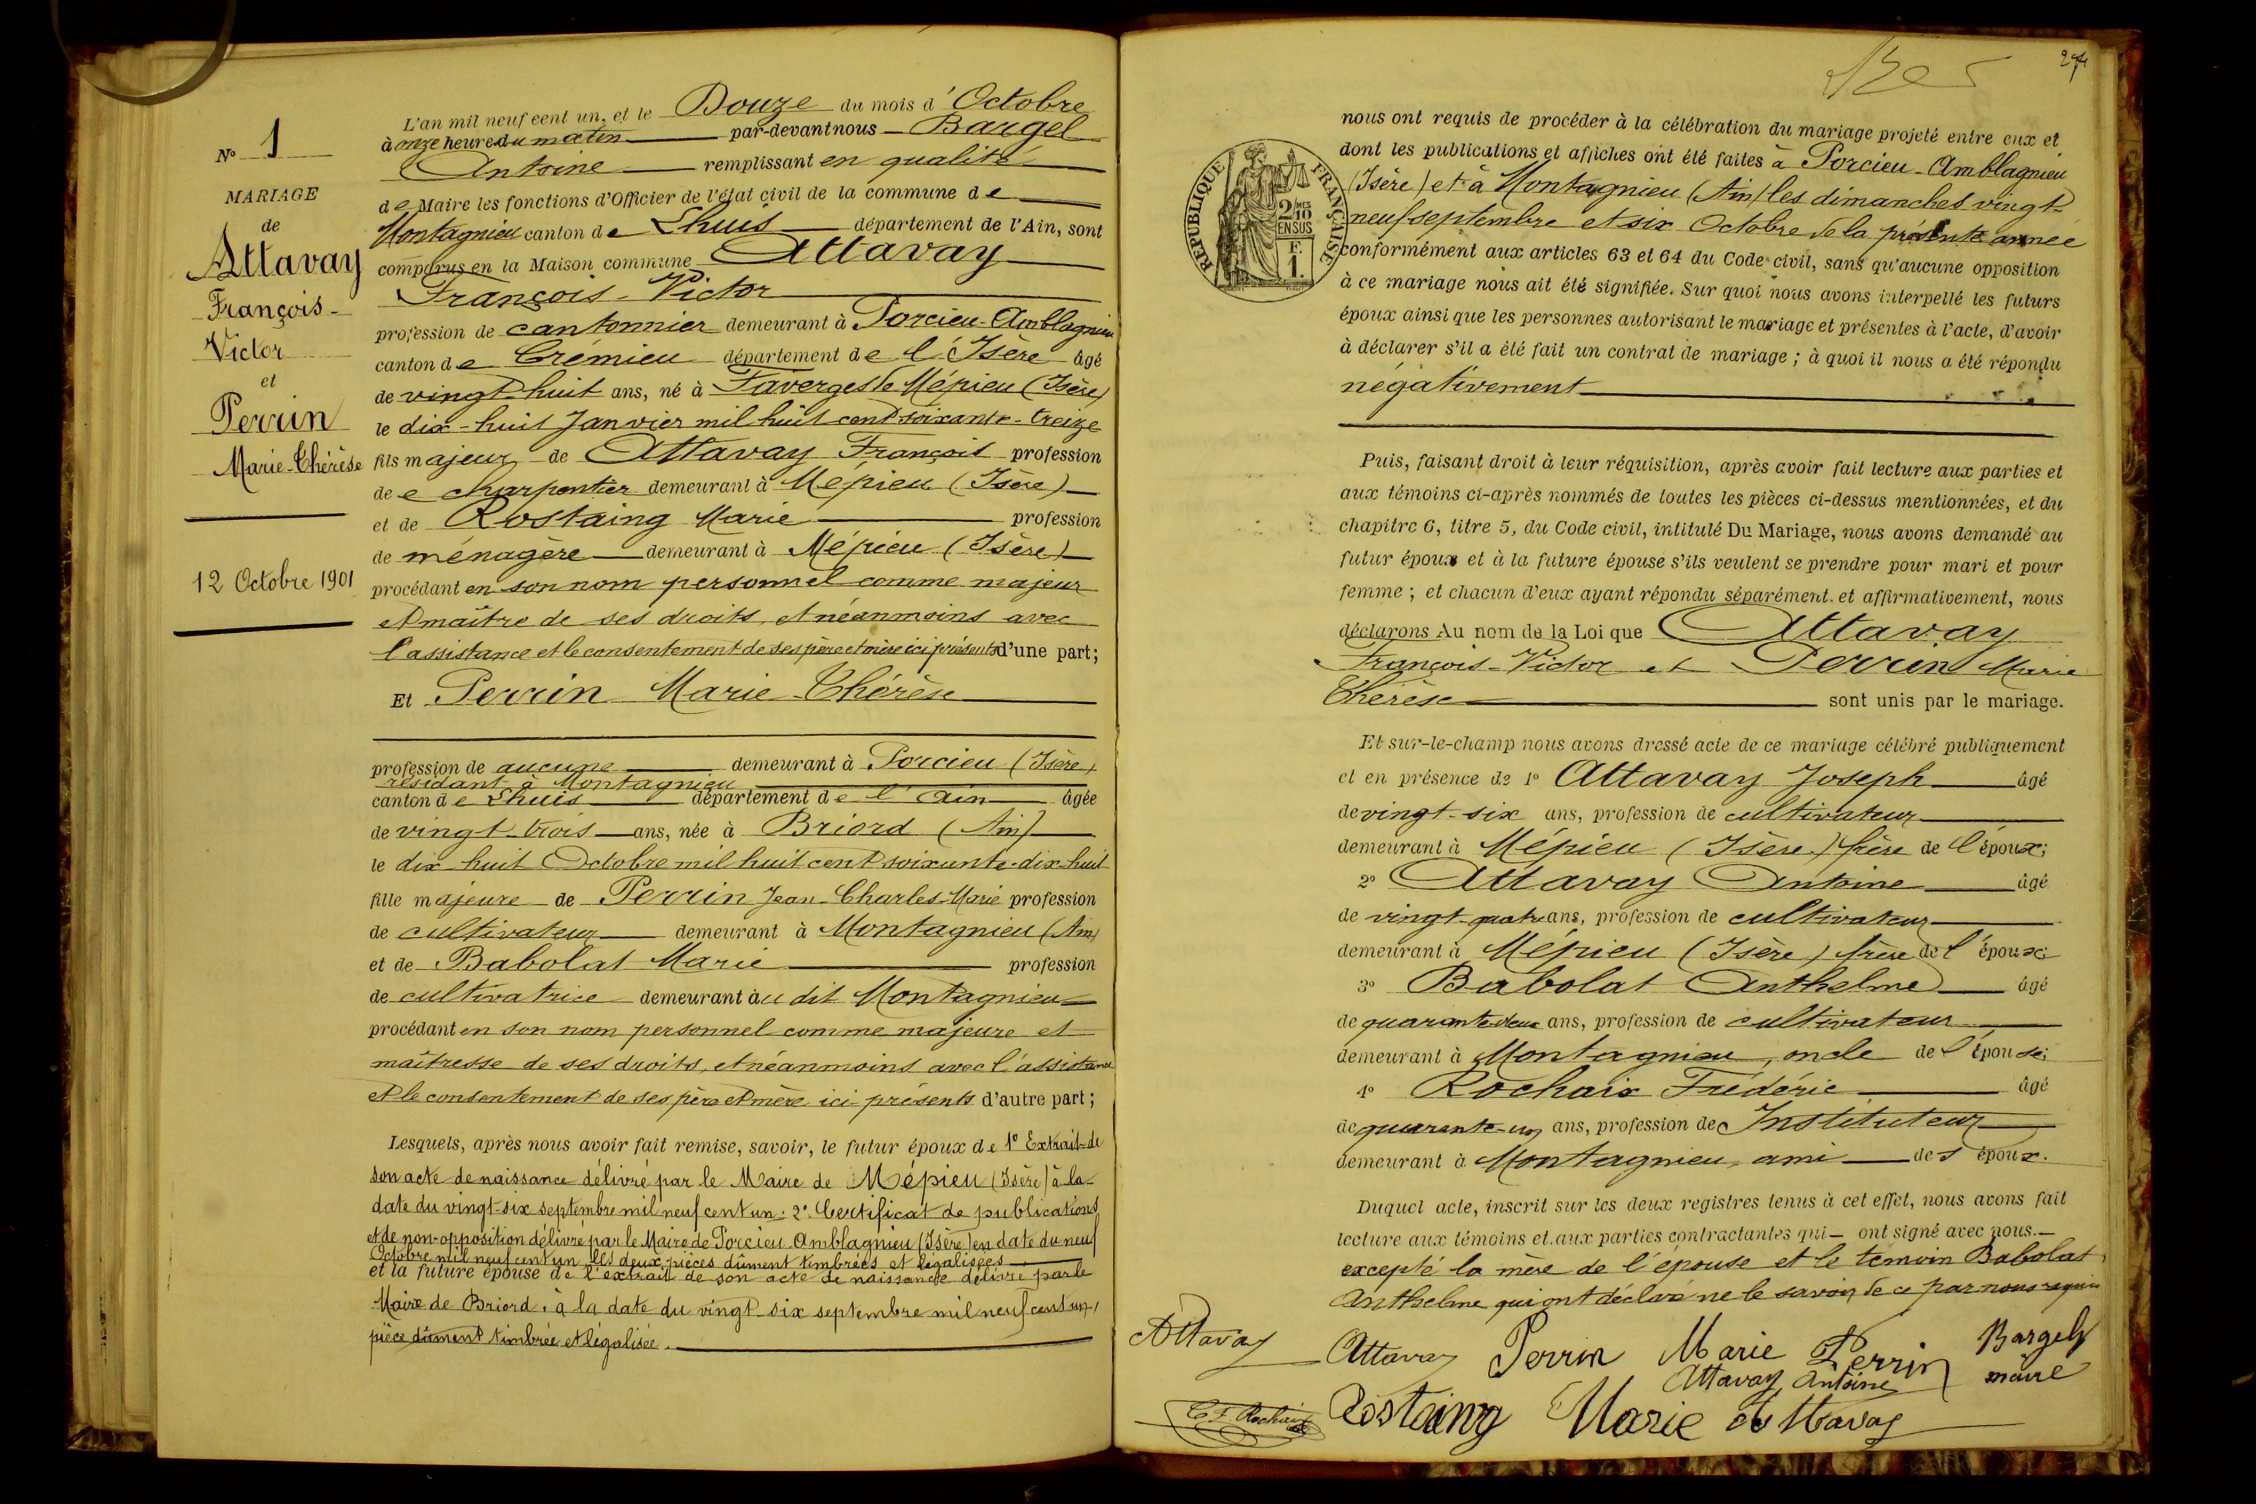 N° 1
MARIAGE
de
Attavay
François-
Victor
et
Perrin
Marie-Thérèse
12 Octobre 1901
L'an mil neuf cent un, et le Douze du mois d'Octobre
à onze heures du matin par-devant nous Bargel
Antoine remplissant en qualité
de Maire les fonctions d'Officier de l'état civil de la commune de
Montagnieu canton de Lhuis département de l'Ain, sont
comparus en la Maison commune Attavay
François-Victor
profession de cantonnier demeurant à Porcieu-Amblagnieu
canton de Crémieu département de l'Isère âgé
de vingt-huit ans, né à Faverges de Mépieu (Isère)
le dix-huit Janvier mil huit cent soixante-treize
fils majeur de Attavay François profession
de charpentier demeurant à Mépieu (Isère)
et de Rostaing Marie profession
de ménagère demeurant à Mépieu (Isère)
procédant en son nom personnel comme majeur
et maître de ses droits, et néanmoins avec
l'assistance et le consentement de ses père et mère ici présents d'une part;
Et Perrin Marie-Thérèse
profession de aucune demeurant à Porcieu (Isère)
résidant à Montagnieu
canton de Lhuis département de l'Ain âgée
de vingt-trois ans, née à Briord (Ain)
le dix-huit Octobre mil huit cent soixante-dix-huit
fille majeure de Perrin Jean-Charles-Marie profession
de cultivateur demeurant à Montagnieu (Ain)
et de Babolat Marie profession
de cultivatrice demeurant audit Montagnieu
procédant en son nom personnel comme majeure et
maîtresse de ses droits, et néanmoins avec l'assistance
et le consentement de ses père et mère ici présents d'autre part;
Lesquels, après nous avoir fait remise, savoir, le futur époux de 1° Extrait de
son acte de naissance délivré par le Maire de Mépieu (Isère) à la
date du vingt-six septembre mil neuf cent un; 2° Certificat de publications
et de non-opposition délivré par le Maire de Porcieu-Amblagnieu (Isère) en date du neuf
Octobre mil neuf cent un, les deux pièces dûment timbrées et légalisées
et la future épouse de l'extrait de son acte de naissance délivré par le
Maire de Briord, à la date du vingt-six septembre mil neuf cent un,
pièce dûment timbrée et légalisée.
RÉPUBLIQUE FRANÇAISE
2/10 MES
EN SUS
F.
1.
nous ont requis de procéder à la célébration du mariage projeté entre eux et
dont les publications et affiches ont été faites à Porcieu-Amblagnieu
(Isère) et à Montagnieu (Ain) les dimanches vingt-
neuf septembre et six Octobre de la présente année
conformément aux articles 63 et 64 du Code civil, sans qu'aucune opposition
à ce mariage nous ait été signifiée. Sur quoi nous avons interpellé les futurs
époux ainsi que les personnes autorisant le mariage et présentes à l'acte, d'avoir
à déclarer s'il a été fait un contrat de mariage; à quoi il nous a été répondu
négativement
Puis, faisant droit à leur réquisition, après avoir fait lecture aux parties et
aux témoins ci-après nommés de toutes les pièces ci-dessus mentionnées, et du
chapitre 6, titre 5, du Code civil, intitulé Du Mariage, nous avons demandé au
futur époux et à la future épouse s'ils veulent se prendre pour mari et pour
femme; et chacun d'eux ayant répondu séparément et affirmativement, nous
déclarons Au nom de la Loi que Attavay
François-Victor et Perrin Marie
Thérèse sont unis par le mariage.
Et sur-le-champ nous avons dressé acte de ce mariage célébré publiquement
et en présence de 1° Attavay Joseph âgé
de vingt-six ans, profession de cultivateur
demeurant à Mépieu (Isère) frère de l'époux;
2° Attavay Antoine âgé
de vingt-quatre ans, profession de cultivateur
demeurant à Mépieu (Isère) frère de l'époux;
3° Babolat Anthelme âgé
de quarante-deux ans, profession de cultivateur
demeurant à Montagnieu, oncle de l'épouse;
4° Rochaix Frédéric âgé
de quarante-un ans, profession de Instituteur
demeurant à Montagnieu, ami des époux.
Duquel acte, inscrit sur les deux registres tenus à cet effet, nous avons fait
lecture aux témoins et aux parties contractantes qui ont signé avec nous.
excepté la mère de l'épouse et le témoin Babolat
Anthelme qui ont déclaré ne le savoir de ce par nous requis
Attavay Attavay Perrin Marie Perrin Bargel
Attavay Antoine maire
C F Rochaix Rostaing Marie Attavay